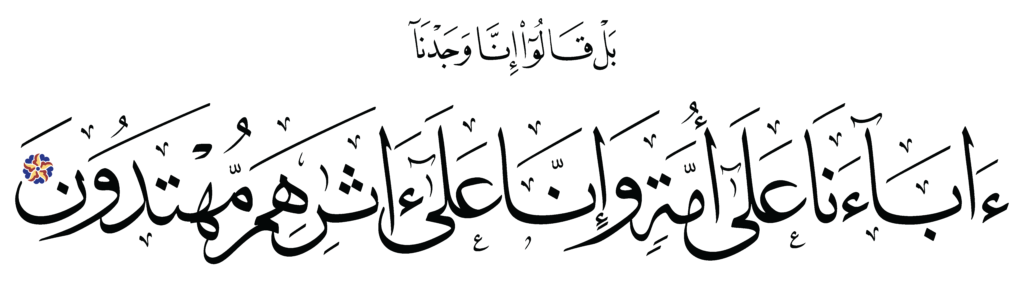 بَلْ قَالُوٓا۟ إِنَّا وَجَدْنَآ
ءَابَآءَنَا عَلَىٰٓ أُمَّةٍ وَإِنَّا عَلَىٰٓ ءَاثَٰرِهِم مُّهْتَدُونَ